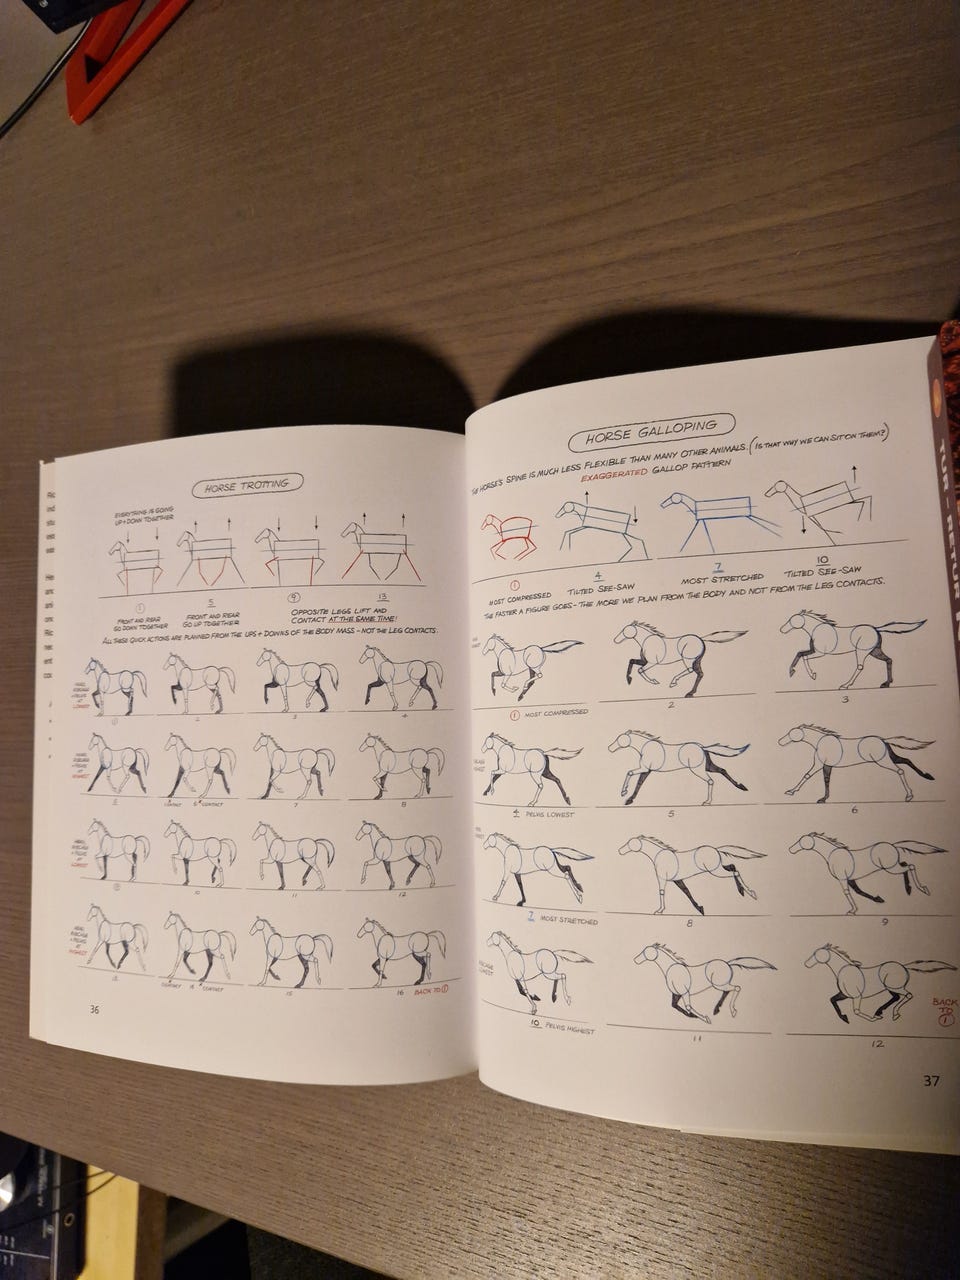 HORSE TROTTING
EVERYTHING IS GOING
UP + DOWN TOGETHER
1
5
9
13
FRONT AND REAR
GO DOWN TOGETHER
FRONT AND REAR
GO UP TOGETHER
OPPOSITE LEGS LIFT AND
CONTACT AT THE SAME TIME!
ALL THESE QUICK ACTIONS ARE PLANNED FROM THE UPS + DOWNS OF THE BODY MASS – NOT THE LEG CONTACTS.
HEAD,
RIBCAGE
+ PELVIS
AT
LOWEST
1
2
3
4
HEAD,
RIBCAGE
+ PELVIS
AT
HIGHEST
5
CONTACT 6 CONTACT
7
8
HEAD,
RIBCAGE
+ PELVIS
AT
LOWEST
9
10
11
12
HEAD,
RIBCAGE
+ PELVIS
AT
HIGHEST
13
CONTACT 14 CONTACT
15
16 BACK TO 1
36
HORSE GALLOPING
THE HORSE'S SPINE IS MUCH LESS FLEXIBLE THAN MANY OTHER ANIMALS. (IS THAT WHY WE CAN SIT ON THEM?)
EXAGGERATED GALLOP PATTERN
1
MOST COMPRESSED
4
TILTED SEE-SAW
7
MOST STRETCHED
10
TILTED SEE-SAW
THE FASTER A FIGURE GOES – THE MORE WE PLAN FROM THE BODY AND NOT FROM THE LEG CONTACTS.
1 MOST COMPRESSED
2
3
4 PELVIS LOWEST
5
6
7 MOST STRETCHED
8
9
RIBCAGE
LOWEST
10 PELVIS HIGHEST
11
12
BACK
TO
1
37
TUR - RETUR